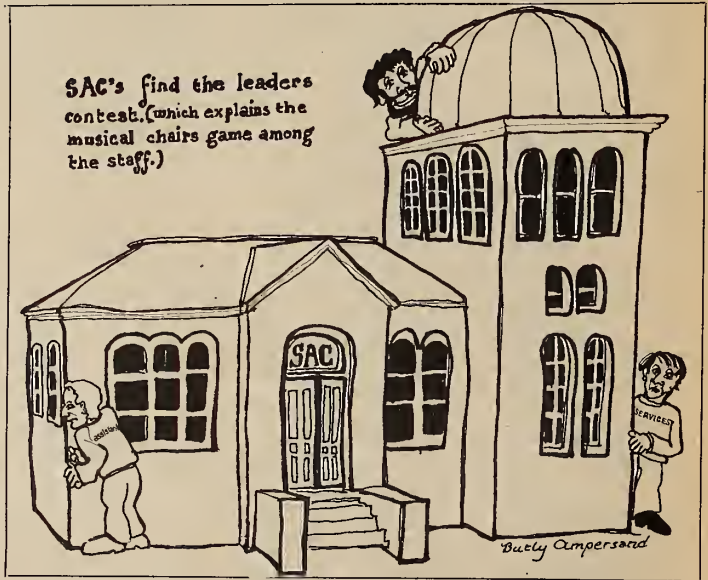 SAC's find the leaders
contest. (which explains the
musical chairs game among
the staff.)
SAC
assistant
SERVICES
Butly Ampersand